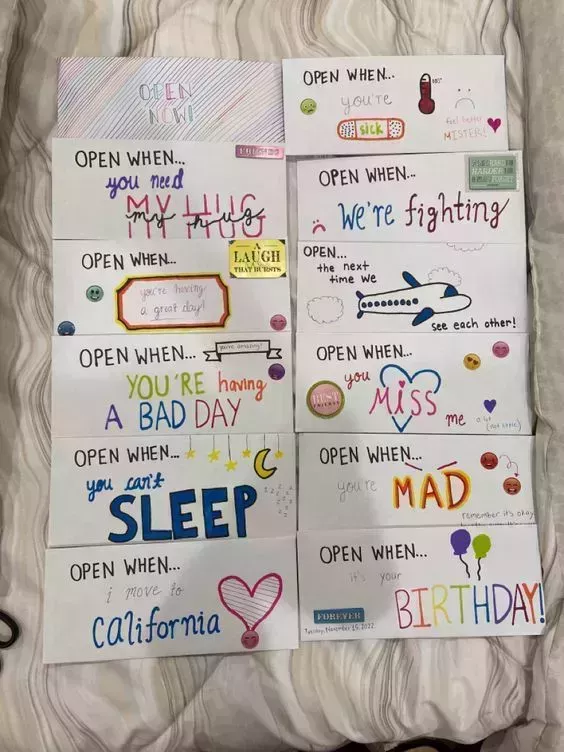 OPEN
NOW!
OPEN WHEN...
you're
sick
feel better
MISTER!
OPEN WHEN...
you need
MY HUG
my hug
OPEN WHEN...
HARDER
FORGET
We're fighting
OPEN WHEN...
A
LAUGH
THAT BURSTS
you're having
a great day!
OPEN...
the next
time we
see each other!
OPEN WHEN...
you're amazing!
YOU'RE having
A BAD DAY
OPEN WHEN...
you
MiSS
me
a lot
(not little)
BEST
OPEN WHEN...
you can't
SLEEP
zzz
OPEN WHEN...
you're
MAD
remember it's okay
OPEN WHEN...
i move to
California
OPEN WHEN...
it's your
BIRTHDAY!
FOREVER
Tuesday, November 15, 2022